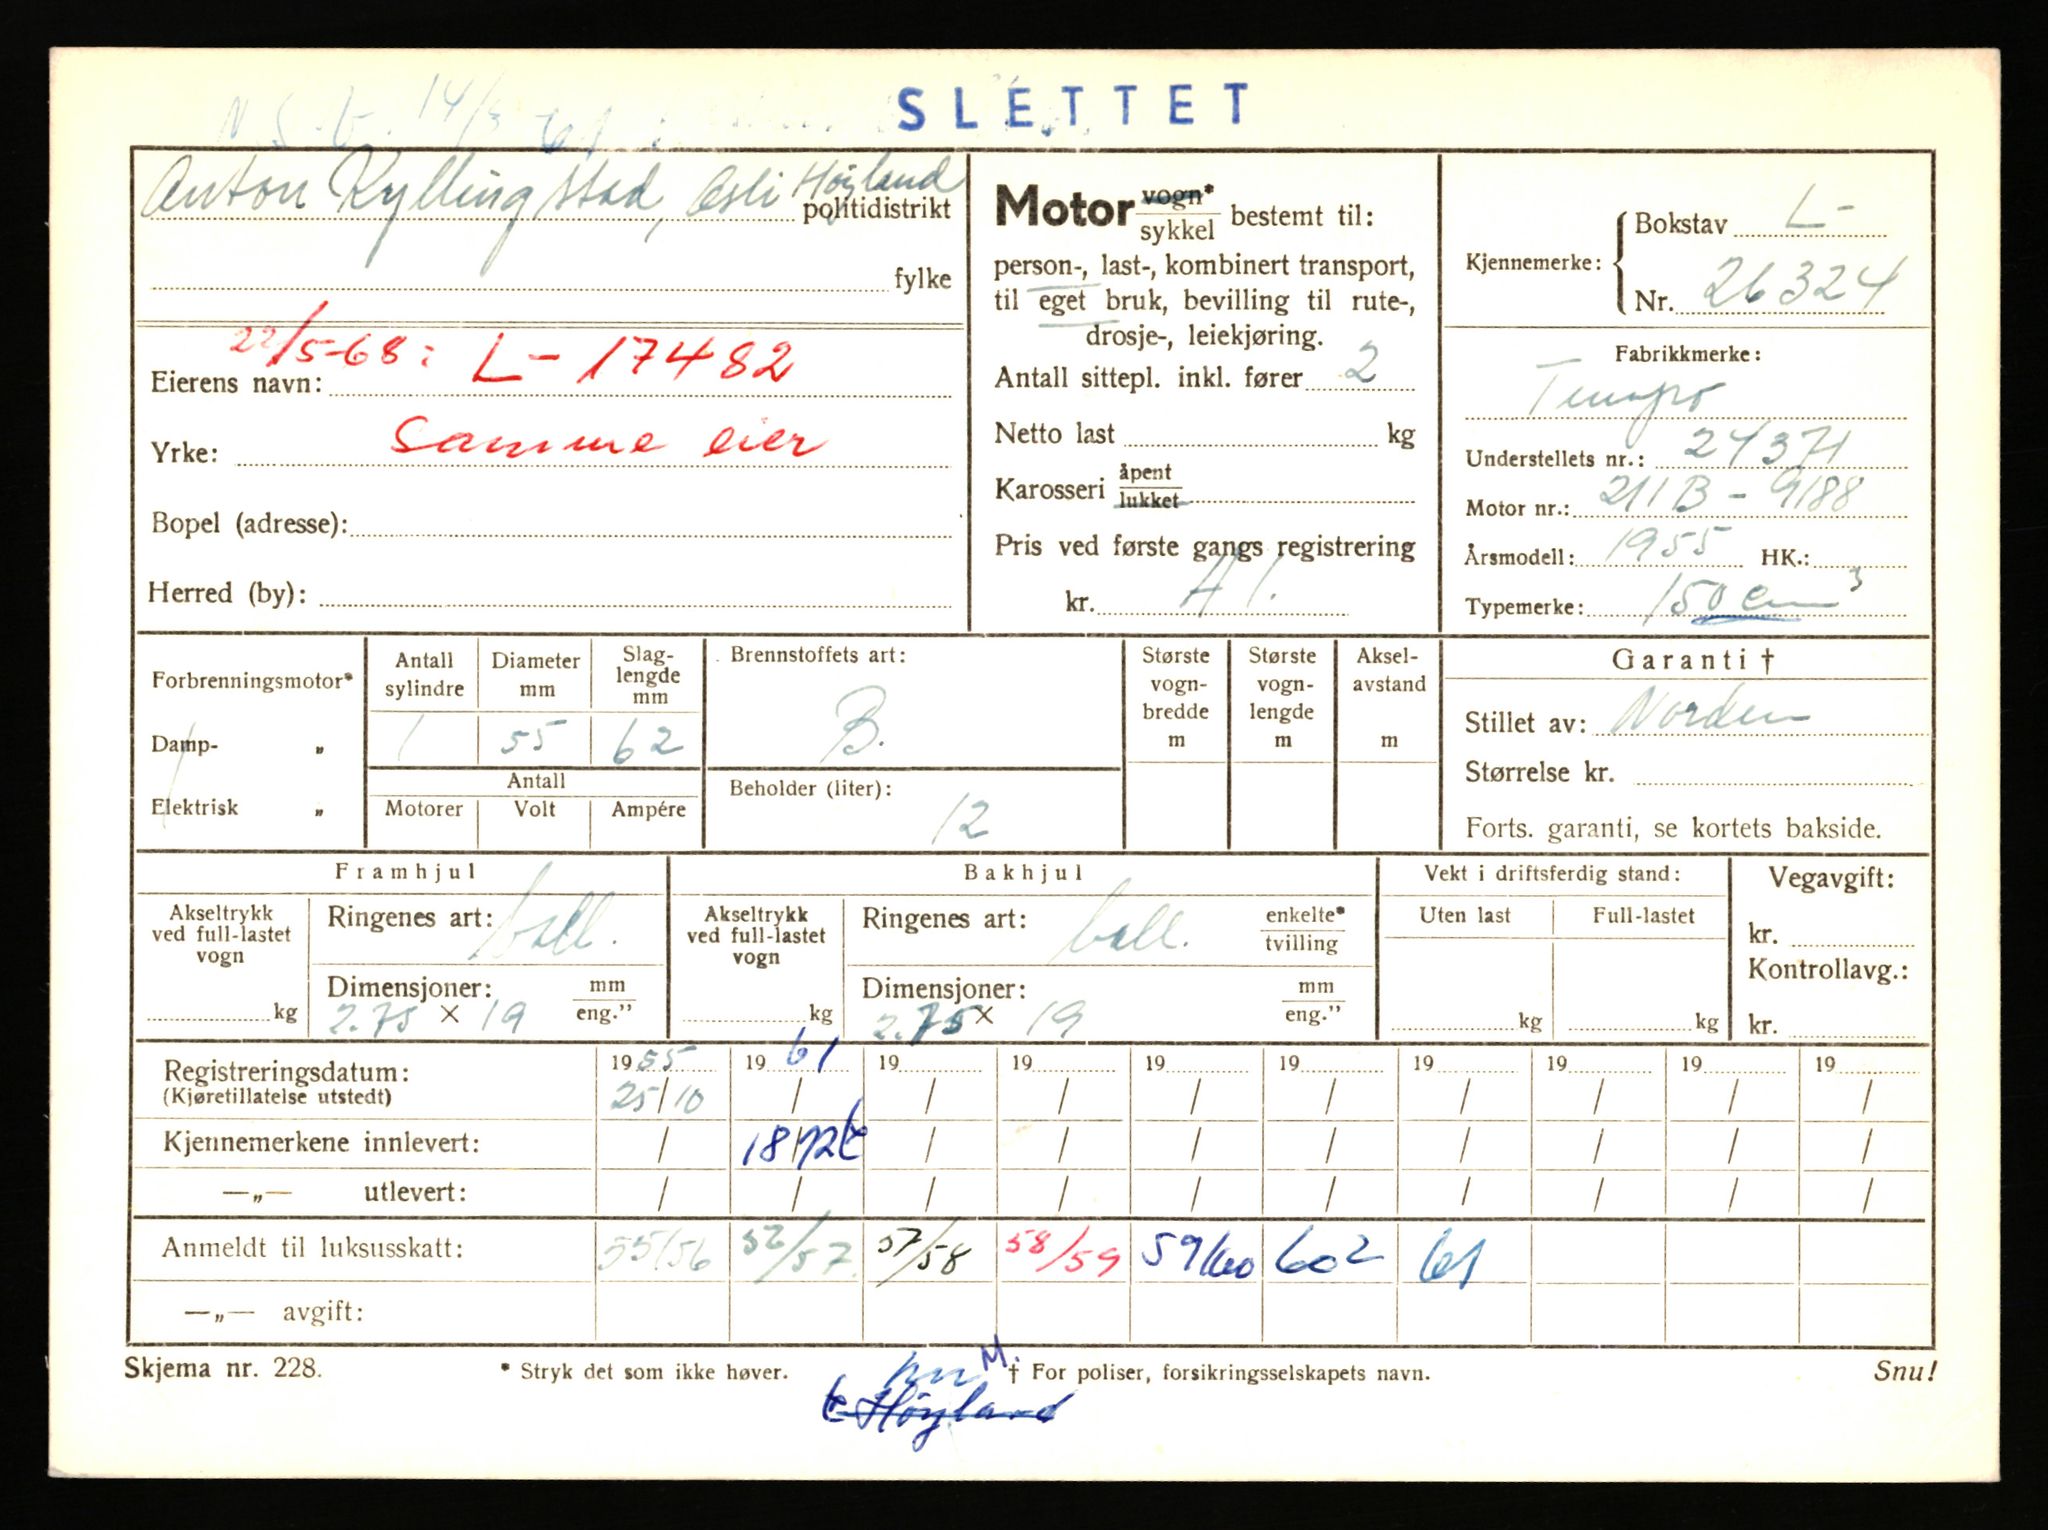 SLETTET
14/3 61
Anton Kyllingstad, Osli Høyland
politidistrikt
fylke
22/5-68: L- 17482
Eierens navn:
samme eier
Yrke:
Bopel (adresse):
Herred (by):
Motor vogn* sykkel bestemt til:
person-, last-, kombinert transport,
til eget bruk, bevilling til rute-,
drosje-, leiekjøring.
Antall sittepl. inkl. fører 2
Netto last kg
Karosseri åpent lukket
Pris ved første gangs registrering
kr.
Kjennemerke: Bokstav L-
Nr. 26324
Fabrikkmerke:
Tempo
Understellets nr.: 24371
Motor nr.: 211B - 9188
Årsmodell: 1955 HK.:
Typemerke: 150 cm3
Forbrenningsmotor*
Damp- „
Elektrisk „
Antall sylindre 1
Diameter mm 55
Slag-lengde mm 62
Antall
Motorer Volt Ampére
Brennstoffets art:
B.
Beholder (liter):
12
Største vogn-bredde m
Største vogn-lengde m
Aksel-avstand m
Garanti †
Stillet av: Norden
Størrelse kr.
Forts. garanti, se kortets bakside.
Framhjul
Akseltrykk ved full-lastet vogn
kg
Ringenes art: ball.
Dimensjoner: mm eng."
2.75 x 19
Bakhjul
Akseltrykk ved full-lastet vogn
kg
Ringenes art: ball. enkelte* tvilling
Dimensjoner: mm eng."
2.75 x 19
Vekt i driftsferdig stand:
Uten last Full-lastet
kg kg
Vegavgift:
kr.
Kontrollavg.:
kr.
Registreringsdatum: 1955 1961 19 19 19 19 19 19 19 19
(Kjøretillatelse utstedt) 25/10 / / / / / / / / /
Kjennemerkene innlevert: / 18/12 / / / / / / / /
—„— utlevert: / / / / / / / / / /
Anmeldt til luksusskatt: 55/56 52/57. 57/58 58/59 59/60 602 61
—„— avgift:
Skjema nr. 228. * Stryk det som ikke høver. M. † For poliser, forsikringsselskapets navn. Snu!
Høyland